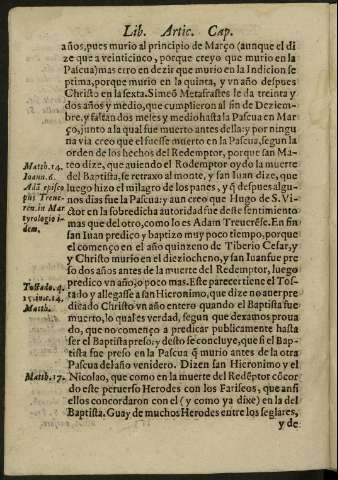 Lib. Artic. Cap.
años, pues murio al principio de Março (aunque el di
ze que a veinticinco, porque creyo que murio en la
Pascua) mas erro en dezir que murio en la Indicion se
ptima, porque murio en la quinta, y vn año despues
Christo en la sexta. Simeõ Metafrastes le da treinta y
dos años y medio, que cumplieron al fin de Deziem-
bre, y faltan dos meles y medio hasta la Pascua en Mar
ço, junto a la qual fue muerto antes della: y por ningu
na via creo que el fuesse muerto en la Pascua, segun la
orden de los hechos del Redemptor, porque san Ma-
teo dize, que auiendo el Rodemptor oydo la muerte
del Baptista, se retraxo al monte, y san Iuan dize, que
luego hizo el milagro de los panes, y q̃ despues algu-
nos dias fue la Pascua: y aun creo que Hugo de S. Vi-
ctor en la sobredicha autoridad fue deste sentimiento
mas que del otro, como lo es Adam Treucrẽse. En fin
san Iuan predico y baptizo muy poco tiempo, porque
el començo en el año quinzeno de Tiberio Cesar, y
y Christo murio en el dieziocheno, y san Iuan fue pre
so dos años antes de la muerte del Redemptor, luego
predico vn año, ò poco mas. Este parecer tiene el Tos-
tado y allegasse a san Hieronimo, que dize no auer pre
dicado Christo vn año entero quando el Baptista fue
muerto, lo qual es verdad, segun que dexamos proua
do, que no començo a predicar publicamente hasta
ser el Baptista preso: y desto se concluye, que si el Bap-
tista fue preso en la Pascua q̃ murio antes de la otra
Pascua del año venidero. Dizen san Hieronimo y el
Nicolao, que como en la muerte del Redẽptor cõcor
do este peruerso Herodes con los Fariseos, que ansi
ellos concordaron con el (y como ya dixe) en la del
Baptista. Guay de muchos Herodes entre los seglares,
y de
Matth. 14.
Ioann. 6.
Adã episco
pus Treue-
ren. in Mar
tyrologio i-
dem.
Tostado. q.
Matth.
Matth. 17.